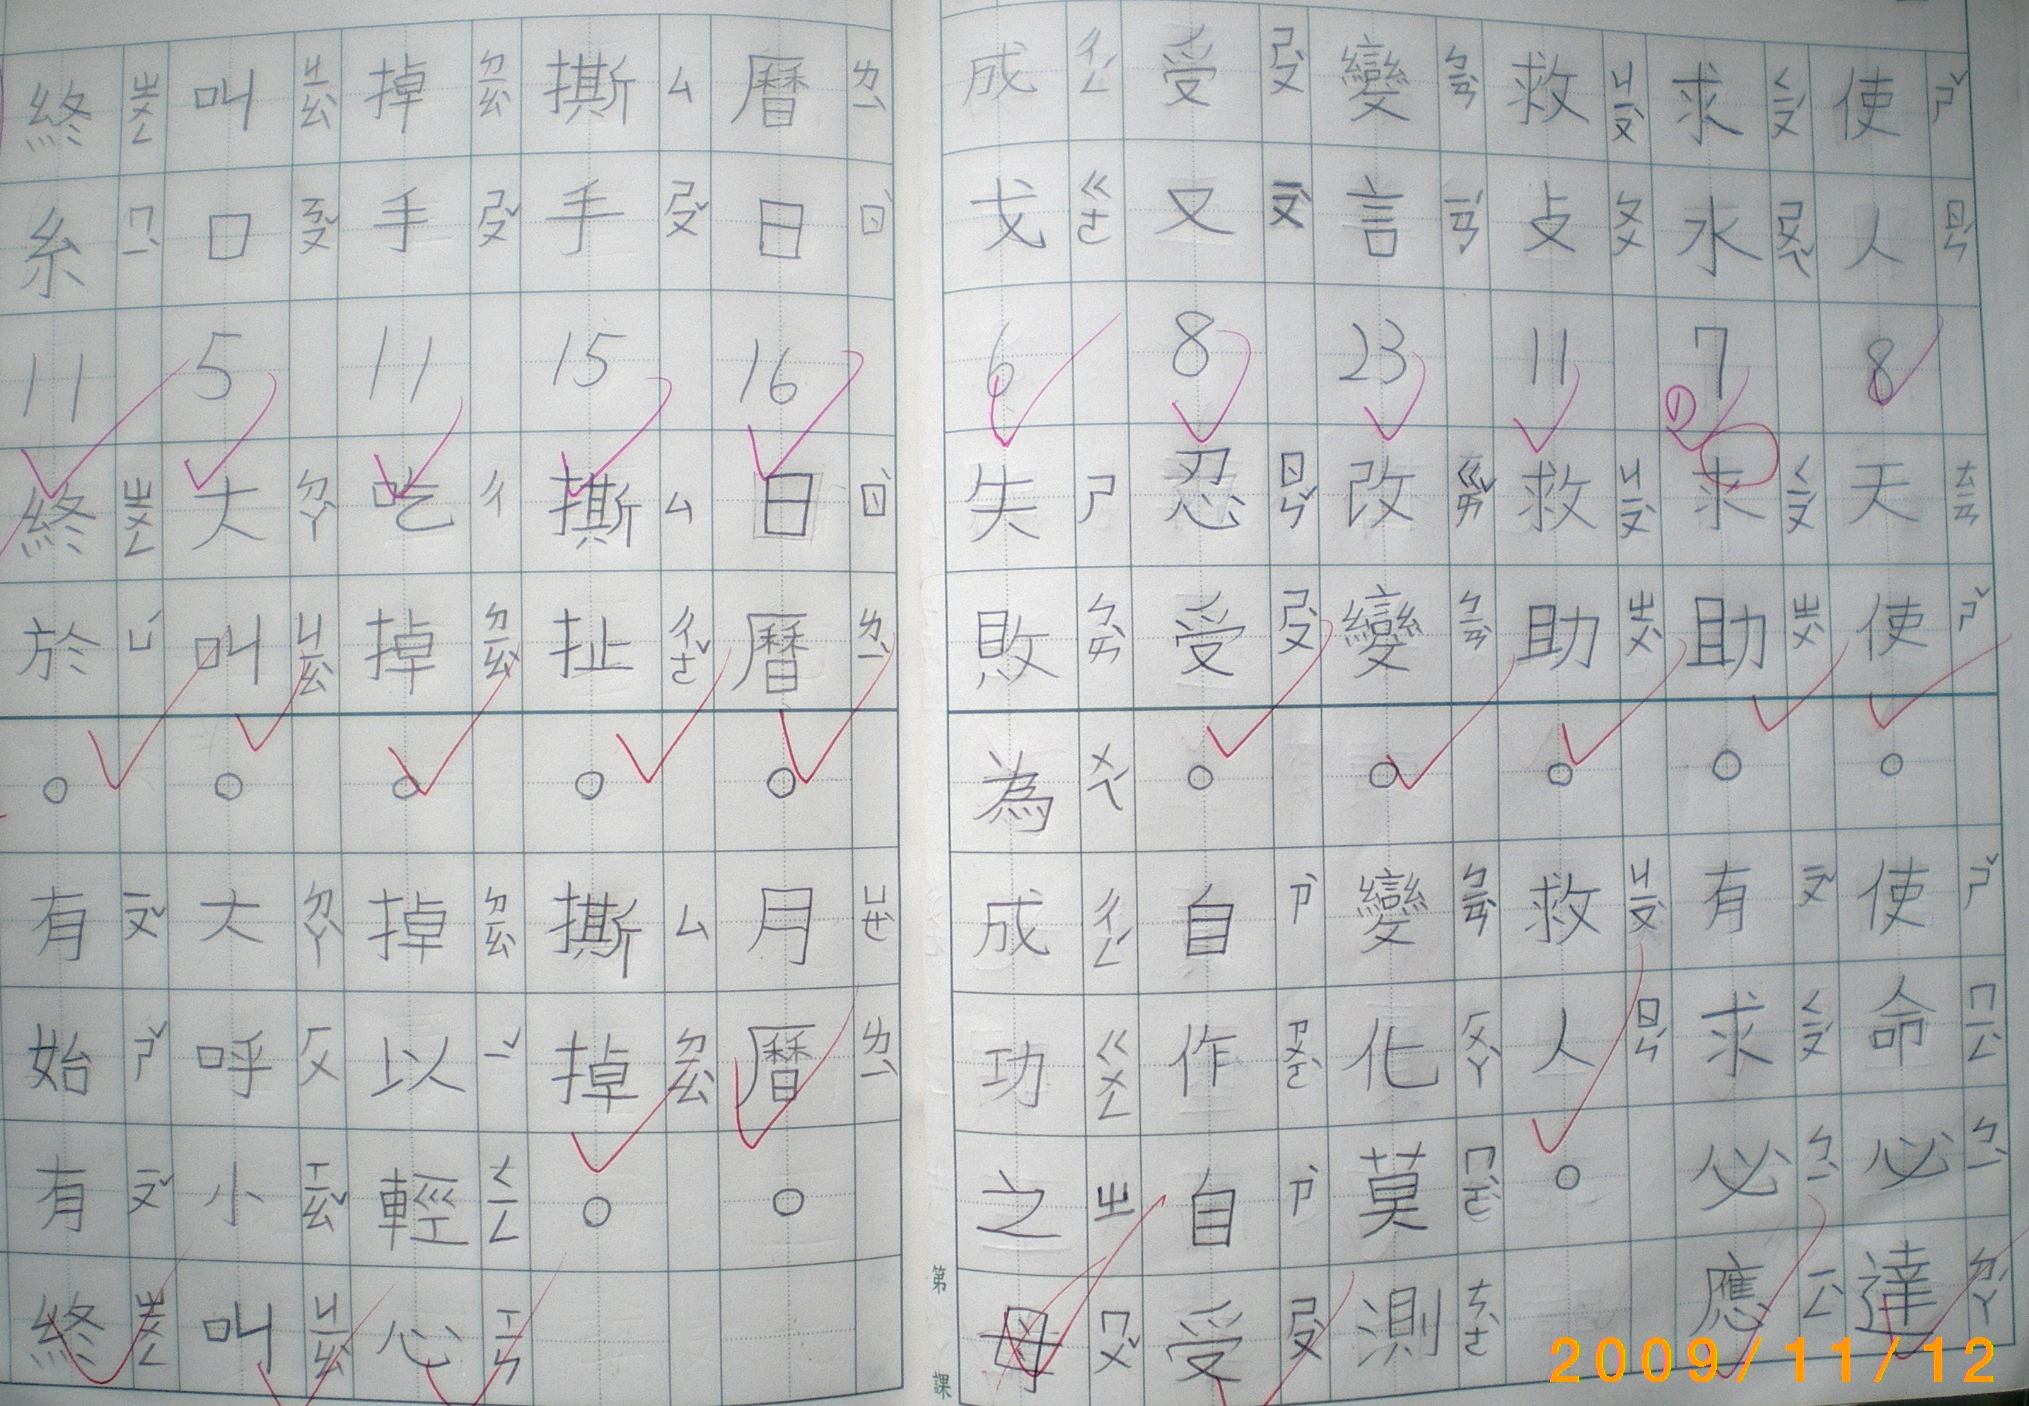 使人8天使。使命必達
ㄕˇ ㄖㄣˊ ㄊㄧㄢ ㄕˇ ㄕˇ ㄇㄧㄥˋ ㄅㄧˋ ㄉㄚˊ
求水7求助。有求必應
ㄑㄧㄡˊ ㄕㄨㄟˇ ㄑㄧㄡˊ ㄓㄨˋ ㄧㄡˇ ㄑㄧㄡˊ ㄅㄧˋ ㄧㄥˋ
救攴11救助。救人。
ㄐㄧㄡˋ ㄆㄨ ㄐㄧㄡˋ ㄓㄨˋ ㄐㄧㄡˋ ㄖㄣˊ
變言23改變。變化莫測
ㄅㄧㄢˋ ㄧㄢˊ ㄍㄞˇ ㄅㄧㄢˋ ㄅㄧㄢˋ ㄏㄨㄚˋ ㄇㄛˋ ㄘㄜˋ
受又8忍受。自作自受
ㄕㄡˋ ㄧㄡˋ ㄖㄣˇ ㄕㄡˋ ㄗˋ ㄗㄨㄛˋ ㄗˋ ㄕㄡˋ
成戈6失敗為成功之母
ㄔㄥˊ ㄍㄜ ㄕ ㄅㄞˋ ㄨㄟˊ ㄔㄥˊ ㄍㄨㄥ ㄓ ㄇㄨˇ
第 課
曆日16日曆。月曆。
ㄌㄧˋ ㄖˋ ㄖˋ ㄌㄧˋ ㄩㄝˋ ㄌㄧˋ
撕手15撕扯。撕掉。
ㄙ ㄕㄡˇ ㄙ ㄔㄜˇ ㄙ ㄉㄧㄠˋ
掉手11吃掉。掉以輕心
ㄉㄧㄠˋ ㄕㄡˇ ㄔ ㄉㄧㄠˋ ㄉㄧㄠˋ ㄧˇ ㄑㄧㄥ ㄒㄧㄣ
叫口5大叫。大呼小叫
ㄐㄧㄠˋ ㄎㄡˇ ㄉㄚˋ ㄐㄧㄠˋ ㄉㄚˋ ㄏㄨ ㄒㄧㄠˇ ㄐㄧㄠˋ
終糸11終於。有始有終
ㄓㄨㄥ ㄇㄧˋ ㄓㄨㄥ ㄩˊ ㄧㄡˇ ㄕˇ ㄧㄡˇ ㄓㄨㄥ
2009/11/12